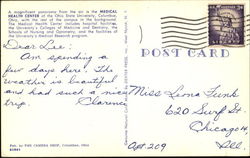 A magnificent panorama from the air is the MEDICAL
HEALTH CENTER of the Ohio State University, Columbus,
Ohio, with the rest of the campus in the background.
The Medical Health Center includes hospital facilities,
the University's Colleges of Medicine and Dentistry, the
Schools of Nursing and Optometry, and the facilities of
the University's Medical Research program.
POST CARD
Dear Lee:
Am spending a
few days here. The
weather is beautiful
and had such a nice
trip Clarence
Miss Lena Funk
620 Surf St.
Chicago 14,
Ill.
Apt 209
Pub. by THE CAMERA SHOP, Columbus, Ohio